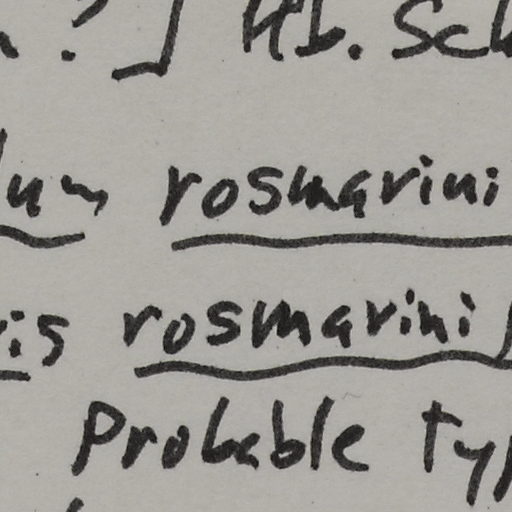 ?] Hb. Sch
lum rosmarini
ris rosmarini
Probable typ